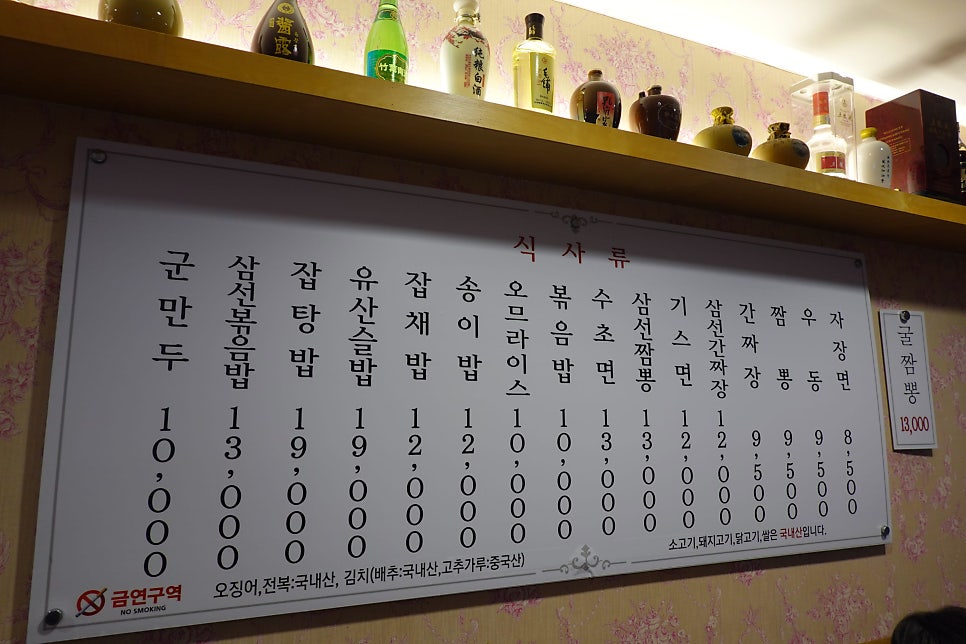 식사류
자장면 8,500
우동 9,500
짬뽕 9,500
간짜장 9,500
삼선간짜장 12,000
기스면 12,000
삼선짬뽕 13,000
수초면 13,000
볶음밥 10,000
오므라이스 10,000
송이밥 12,000
잡채밥 12,000
유산슬밥 19,000
잡탕밥 19,000
삼선볶음밥 13,000
군만두 10,000
소고기,돼지고기,닭고기,쌀은 국내산입니다.
오징어,전복:국내산, 김치(배추:국내산,고추가루:중국산)
금연구역
NO SMOKING
굴짬뽕
13,000
醬露
純粮白酒